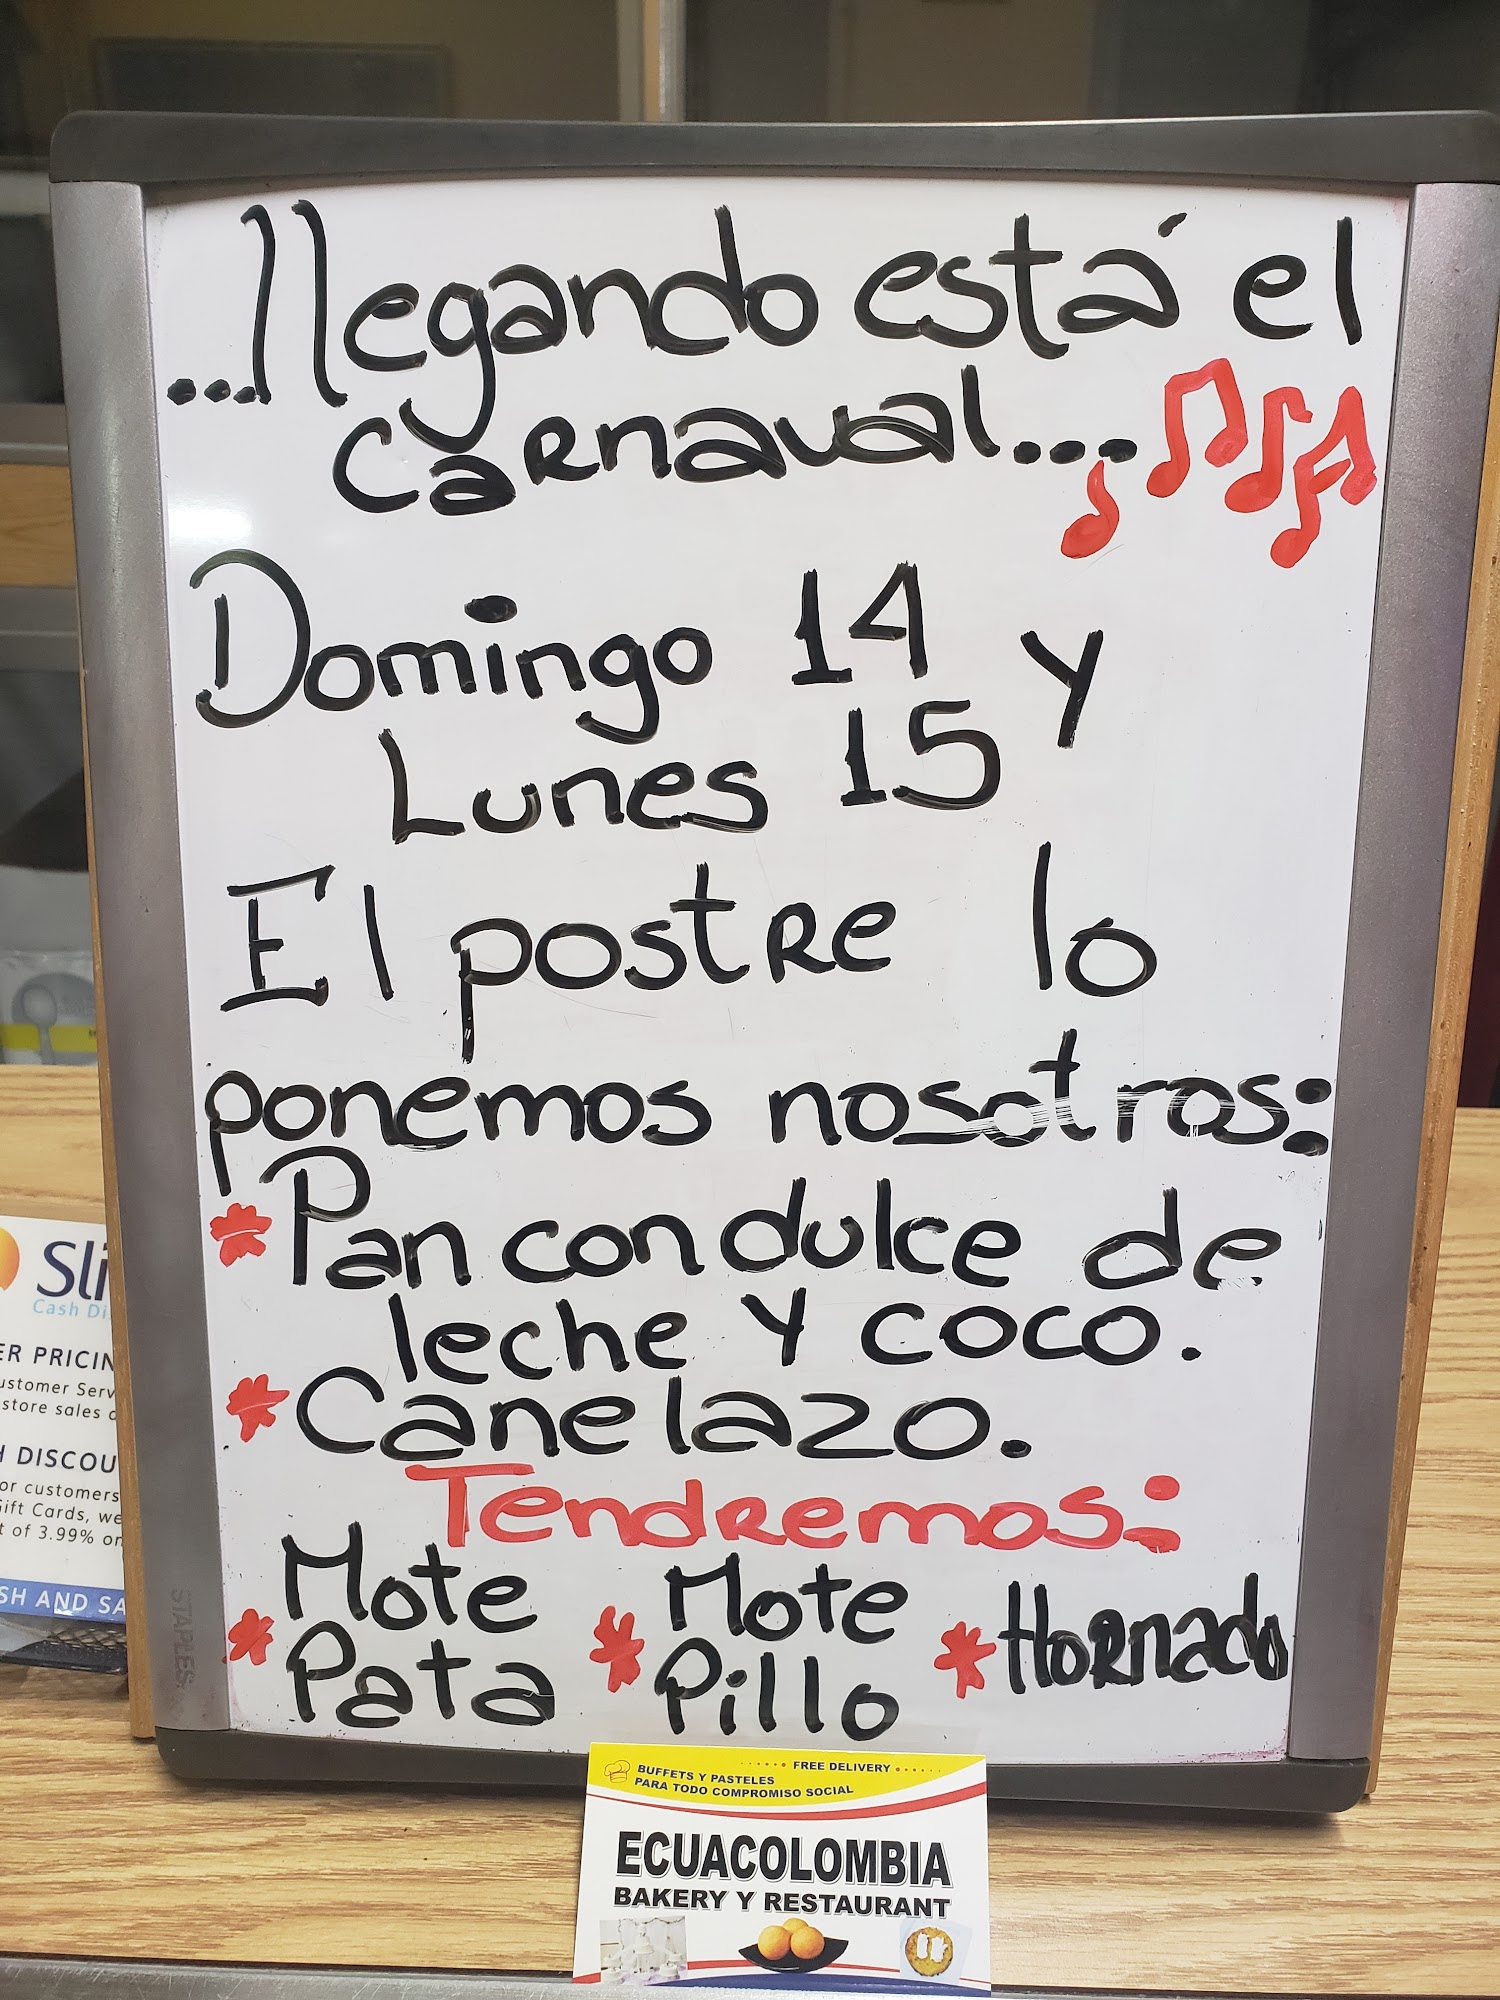 ...llegando está el
carnaval....
Domingo 14 y
Lunes 15
El postre lo
ponemos nosotros:
* Pan con dulce de
leche y coco.
* Canelazo.
Tendremos:
* Mote Pata * Mote Pillo * Hornado
STAPLES
Sli
Cash Di
ER PRICIN
ustomer Serv
store sales
DISCOU
or customers
Gift Cards, we
t of 3.99% on
SH AND SA
FREE DELIVERY
BUFFETS Y PASTELES
PARA TODO COMPROMISO SOCIAL
ECUACOLOMBIA
BAKERY Y RESTAURANT